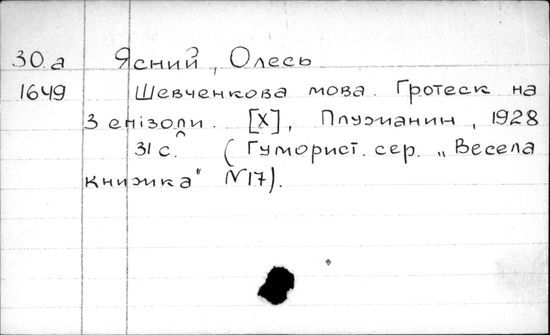 30.а Ясний, Олесь
1649 Шевченкова мова. Гротеск на
3 епізоди. [Х], Плужанин, 1928
31 с. (Гуморист. сер. „Весела
книжка" №17).